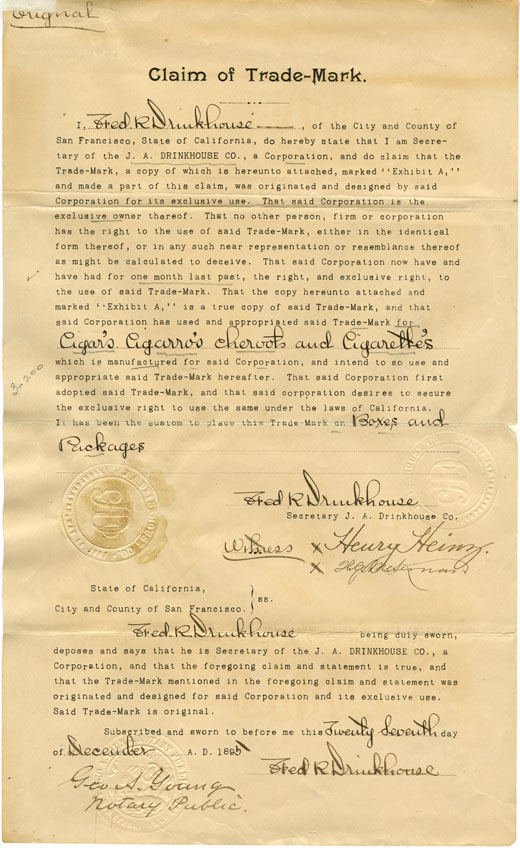 Original
Claim of Trade-Mark.
I, Fred. R. Drinkhouse, of the City and County of
San Francisco, State of California, do hereby state that I am Secre-
tary of the J. A. DRINKHOUSE CO., a Corporation, and do claim that the
Trade-Mark, a copy of which is hereunto attached, marked ''Exhibit A,''
and made a part of this claim, was originated and designed by said
Corporation for its exclusive use. That said Corporation is the
exclusive owner thereof. That no other person, firm or corporation
has the right to the use of said Trade-Mark, either in the identical
form thereof, or in any such near representation or resemblance thereof
as might be calculated to deceive. That said Corporation now have and
have had for one month last past, the right, and exclusive right, to
the use of said Trade-Mark. That the copy hereunto attached and
marked ''Exhibit A,'' is a true copy of said Trade-Mark, and that
said Corporation has used and appropriated said Trade-Mark for
Cigar's Cigarro's cheroots and Cigarette's
which is manufactured for said Corporation, and intend to so use and
appropriate said Trade-Mark hereafter. That said Corporation first
adopted said Trade-Mark, and that said corporation desires to secure
the exclusive right to use the same under the laws of California.
It has been the custom to place this Trade-Mark on Boxes and
Packages
3-200
Fred R Drinkhouse
Secretary J. A. Drinkhouse Co.
Witness x Henry Heinz.
x
State of California,
City and County of San Francisco. } ss.
Fred R. Drinkhouse being duly sworn,
deposes and says that he is Secretary of the J. A. DRINKHOUSE CO., a
Corporation, and that the foregoing claim and statement is true, and
that the Trade-Mark mentioned in the foregoing claim and statement was
originated and designed for said Corporation and its exclusive use.
Said Trade-Mark is original.
Subscribed and sworn to before me this Twenty Seventh day
of December A. D. 189
Fred R Drinkhouse
Geo A. Young
Notary Public.